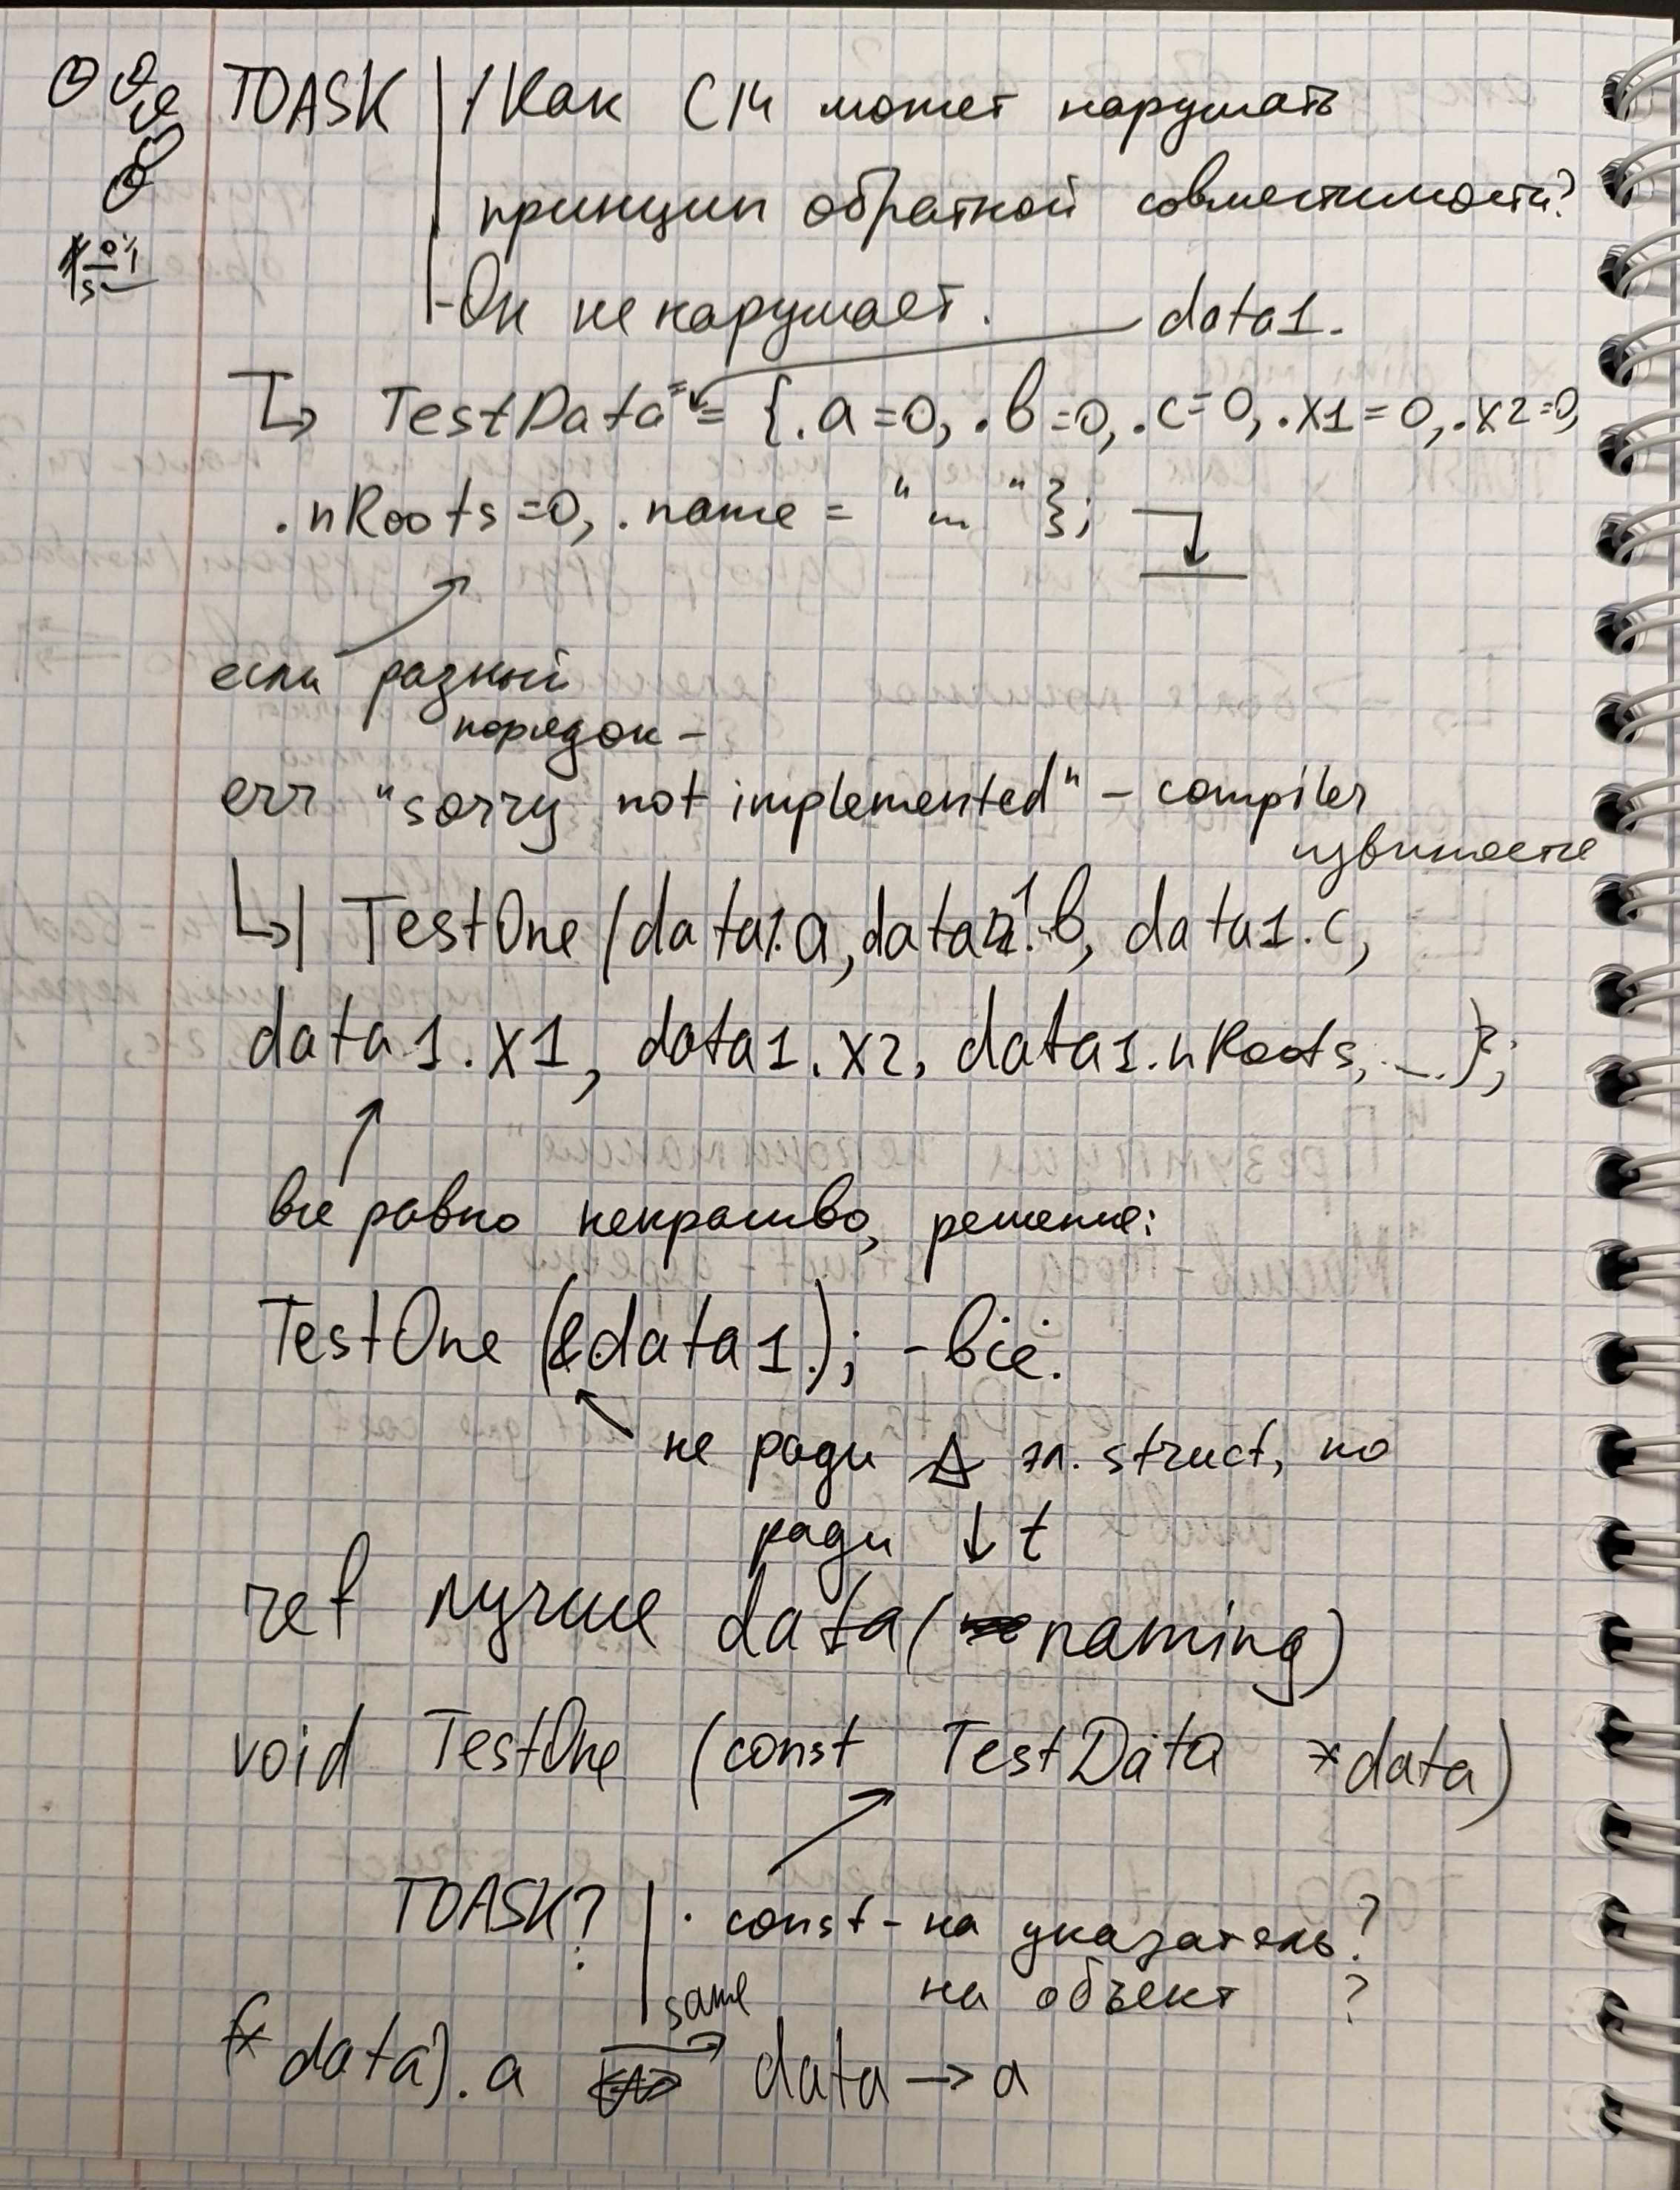 TOASK | 1 Как С14 может нарушать
принцип обратной совместимости?
- Он не нарушает.
data1.
↳ TestData = {.a=0, .b=0, .c=0, .x1=0, .x2=0,
.nRoots=0, .name = "..." };
если разный
порядок -
err "sorry not implemented" - compiler
извиняется
↳| TestOne (data1.a, data1.b, data1.c,
data1.x1, data1.x2, data1.nRoots, ...);
все равно некрасиво, решение:
TestOne (&data1); - всё.
не ради Δ эл. struct, но
ради ↓ t
ref лучше data (naming)
void TestOne (const TestData *data)
TOASK? | · const - на указатель?
на объект ?
same
(* data).a data → a